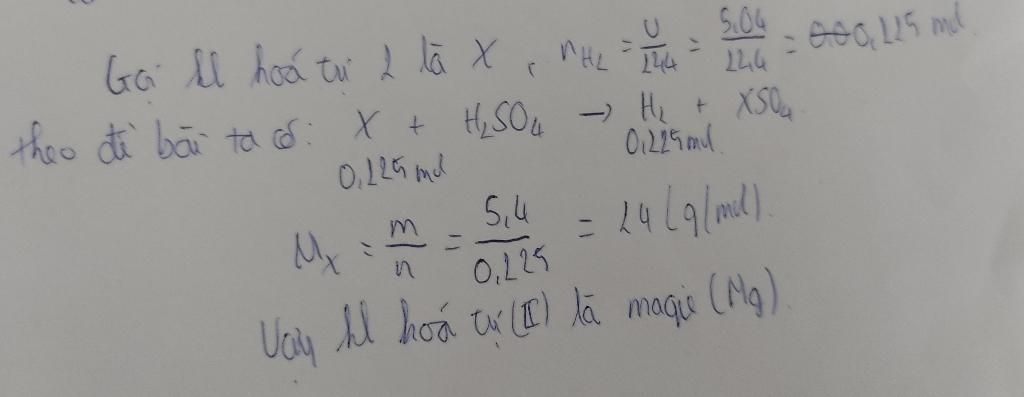 Gọi kl hoá trị 2 là X, nH2 = V/22,4 = 5,04/22,4 = 0,225 mol
theo đề bài ta có: X + H2SO4 → H2 + XSO4
0,225 mol 0,225 mol
Mx = m/n = 5,4/0,225 = 24 (g/mol).
Vậy kl hoá trị (II) là magie (Mg).